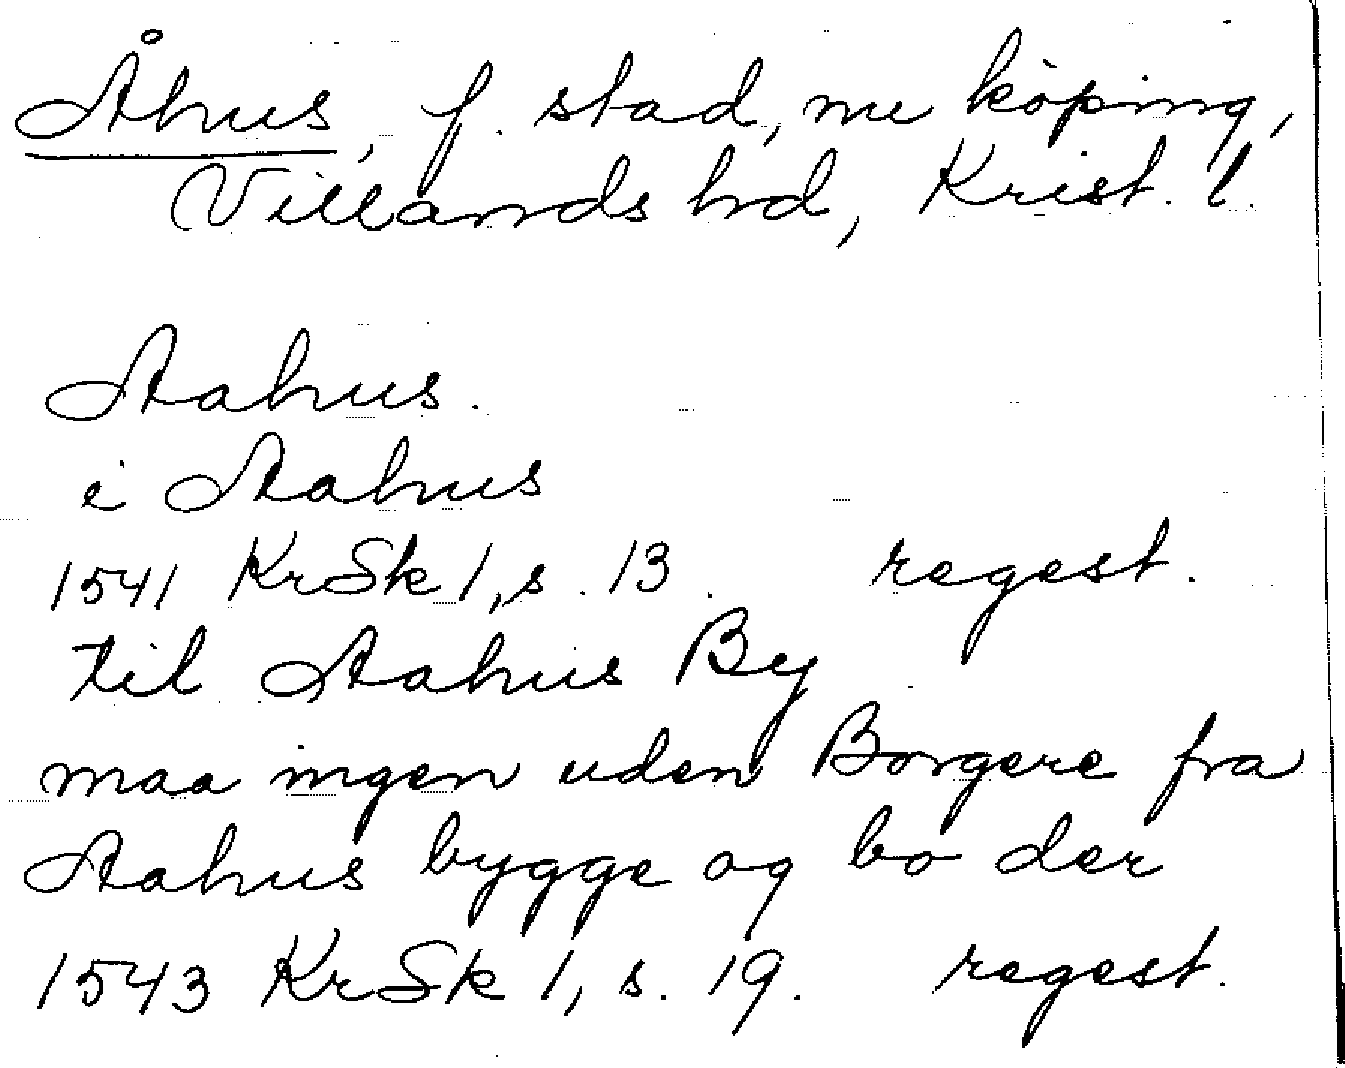 Åhus, f. stad, nu köping,
Villands hd, Krist. l.
Aahus.
i Aahus
1541 KrSk 1, s. 13. regest.
til Aahus By
maa ingen uden Borgere fra
Aahus bygge og bo der
1543 KrSk 1, s. 19. regest.